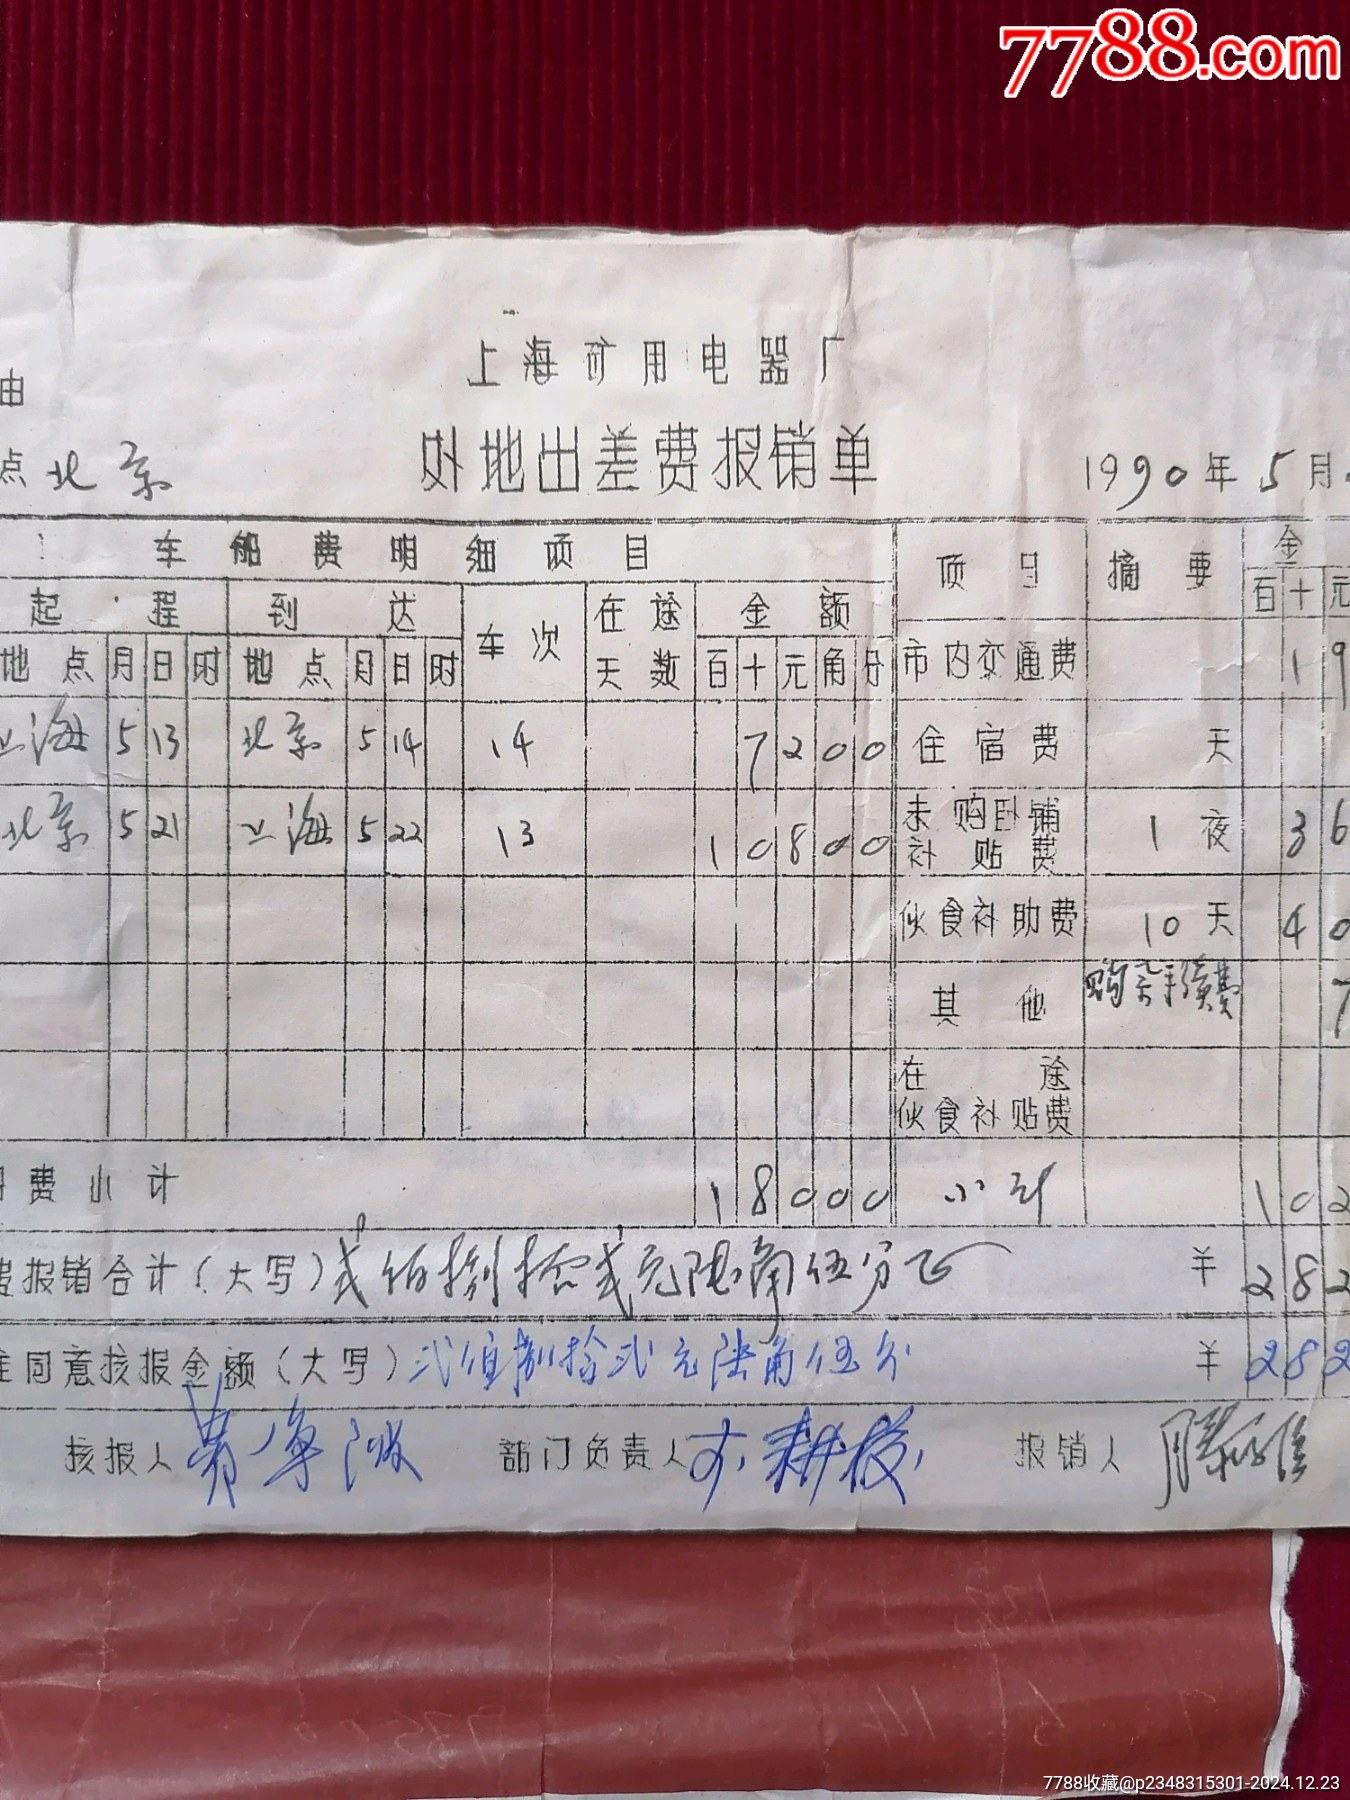 7788.com
上海矿用电器厂
由
点 北京 外地出差费报销单 1990年5月
车船费明细项目 项目 摘要 金
起程 到达 车次 在途天数 金额 百 十 元
地点 月 日 时 地点 月 日 时 百 十 元 角 分 市内交通费 1 9
上海 5 13 北京 5 14 14 7 2 0 0 住宿费 天
北京 5 21 上海 5 22 13 1 0 8 0 0 未购卧铺补贴费 1 夜 3 6
伙食补助费 10 天 4 0
其他 购票手续费 7
在途伙食补贴费
费小计 1 8 0 0 0 小计 1 0 2
报销合计(大写) 弍佰捌拾弍元陆角伍分正 ¥ 2 8 2
同意核报金额(大写) 弍佰捌拾弍元陆角伍分 ¥ 2 8 2
核报人 部门负责人 报销人
7788收藏@p2348315301-2024.12.23